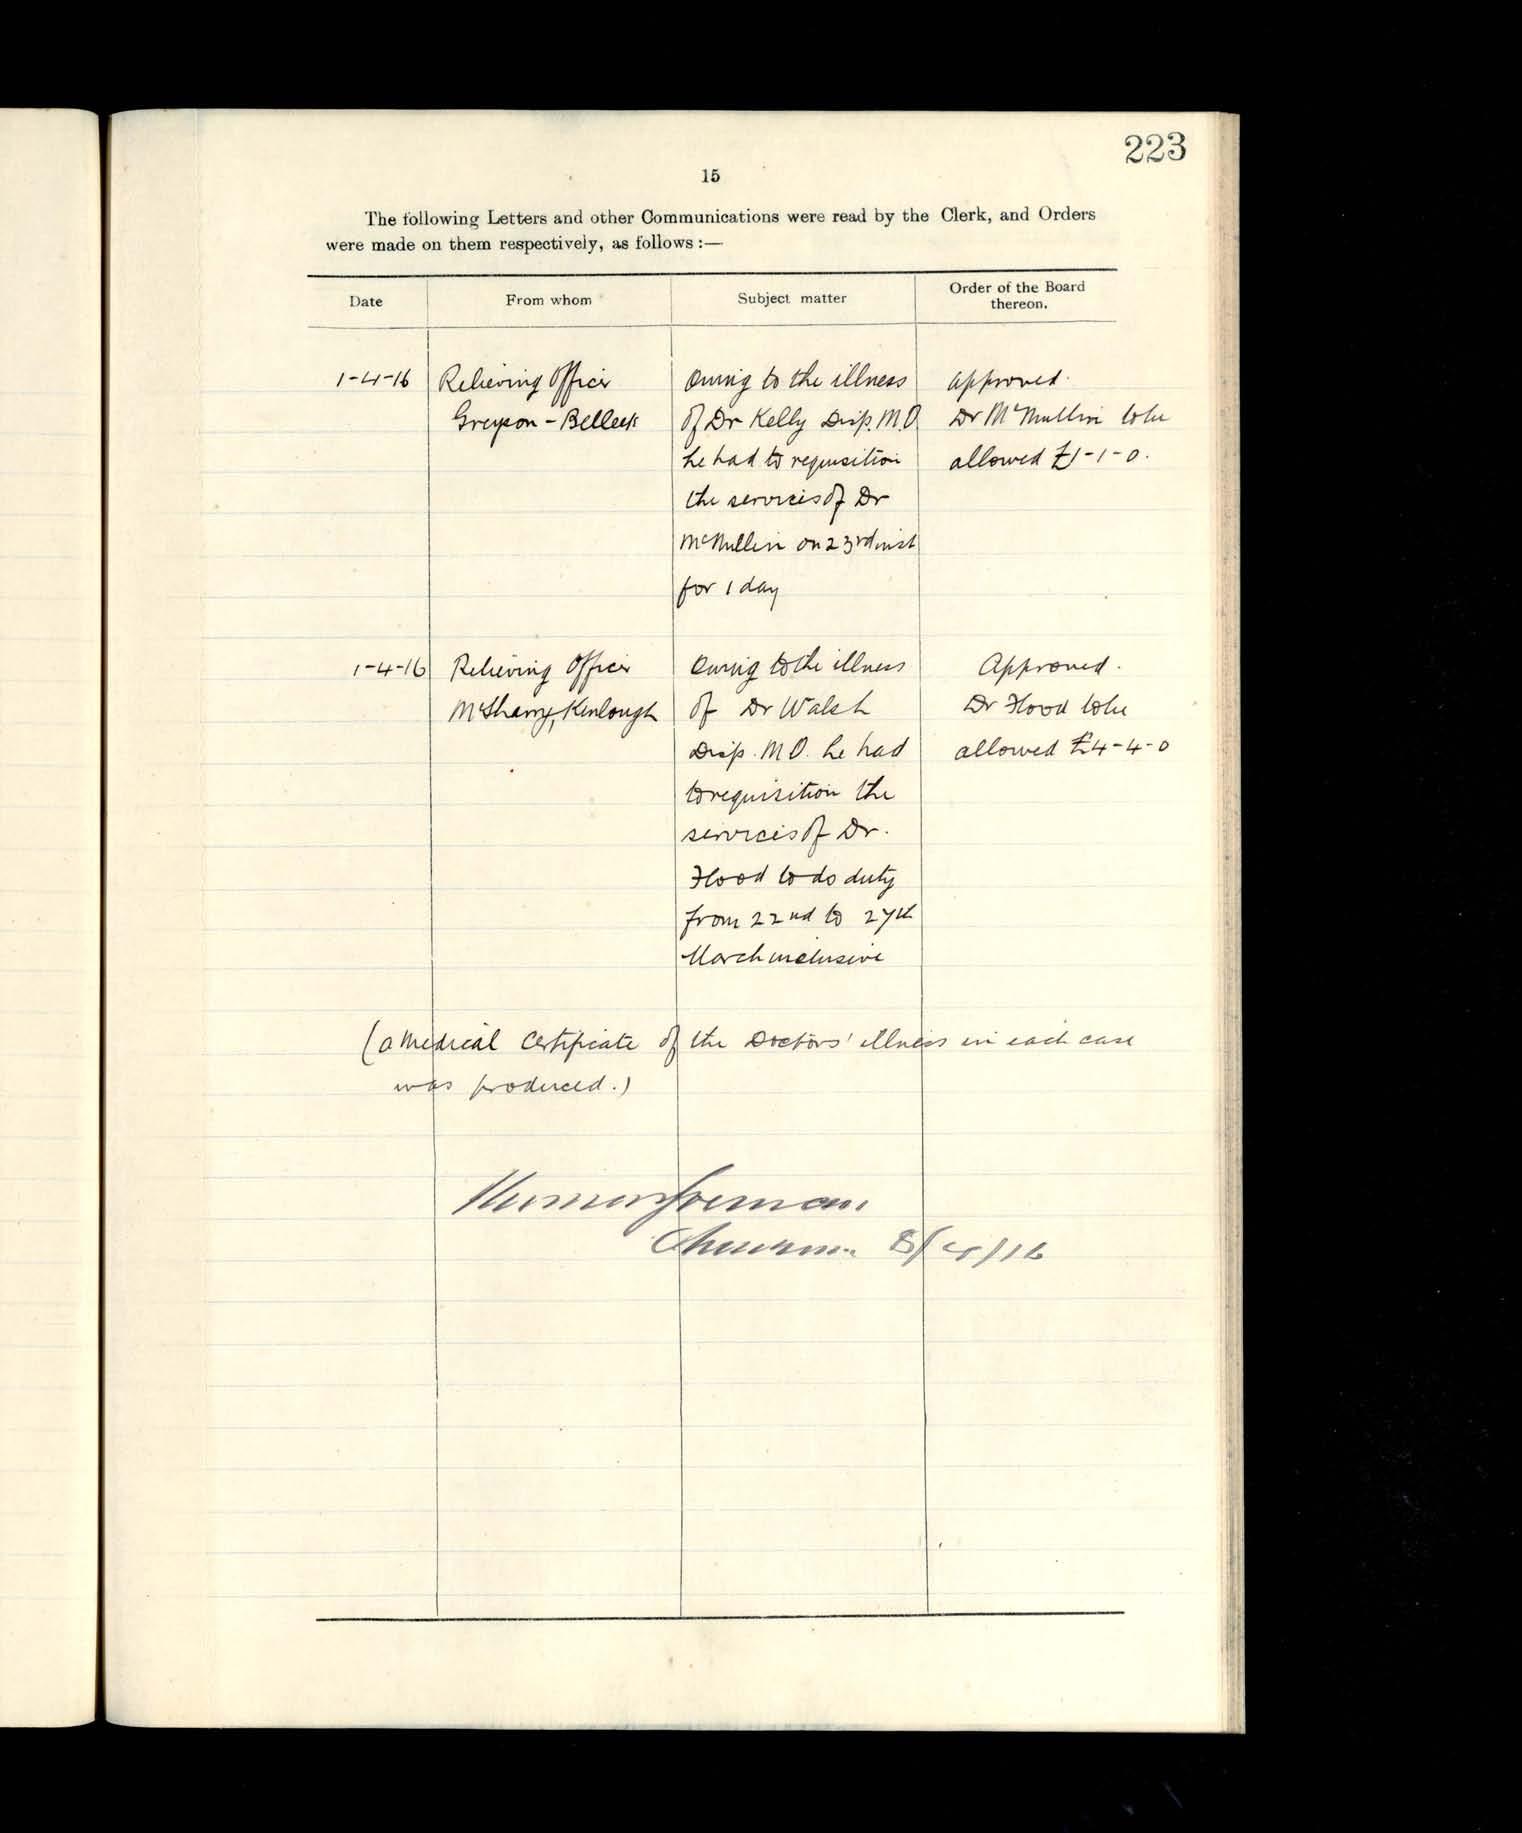 223
15
The following Letters and other Communications were read by the Clerk, and Orders
were made on them respectively, as follows :—
Date
From whom
Subject matter
Order of the Board
thereon.
1-4-16
Relieving Officer
Greyson - Belleek
Owing to the illness
of Dr Kelly Disp. M.O.
he had to requisition
the services of Dr
McMullin on 23rd inst
for 1 day
approved.
Dr McMullin to be
allowed £1-1-0.
1-4-16
Relieving Officer
McSharry, Kinlough
Owing to the illness
of Dr Walsh
Disp. M.O. he had
to requisition the
services of Dr.
Flood to do duty
from 22nd to 27th
March inclusive
Approved.
Dr Flood to be
allowed £4-4-0
(a Medical Certificate of the Doctors' illness in each case
was produced.)
Chairman 8/4/16